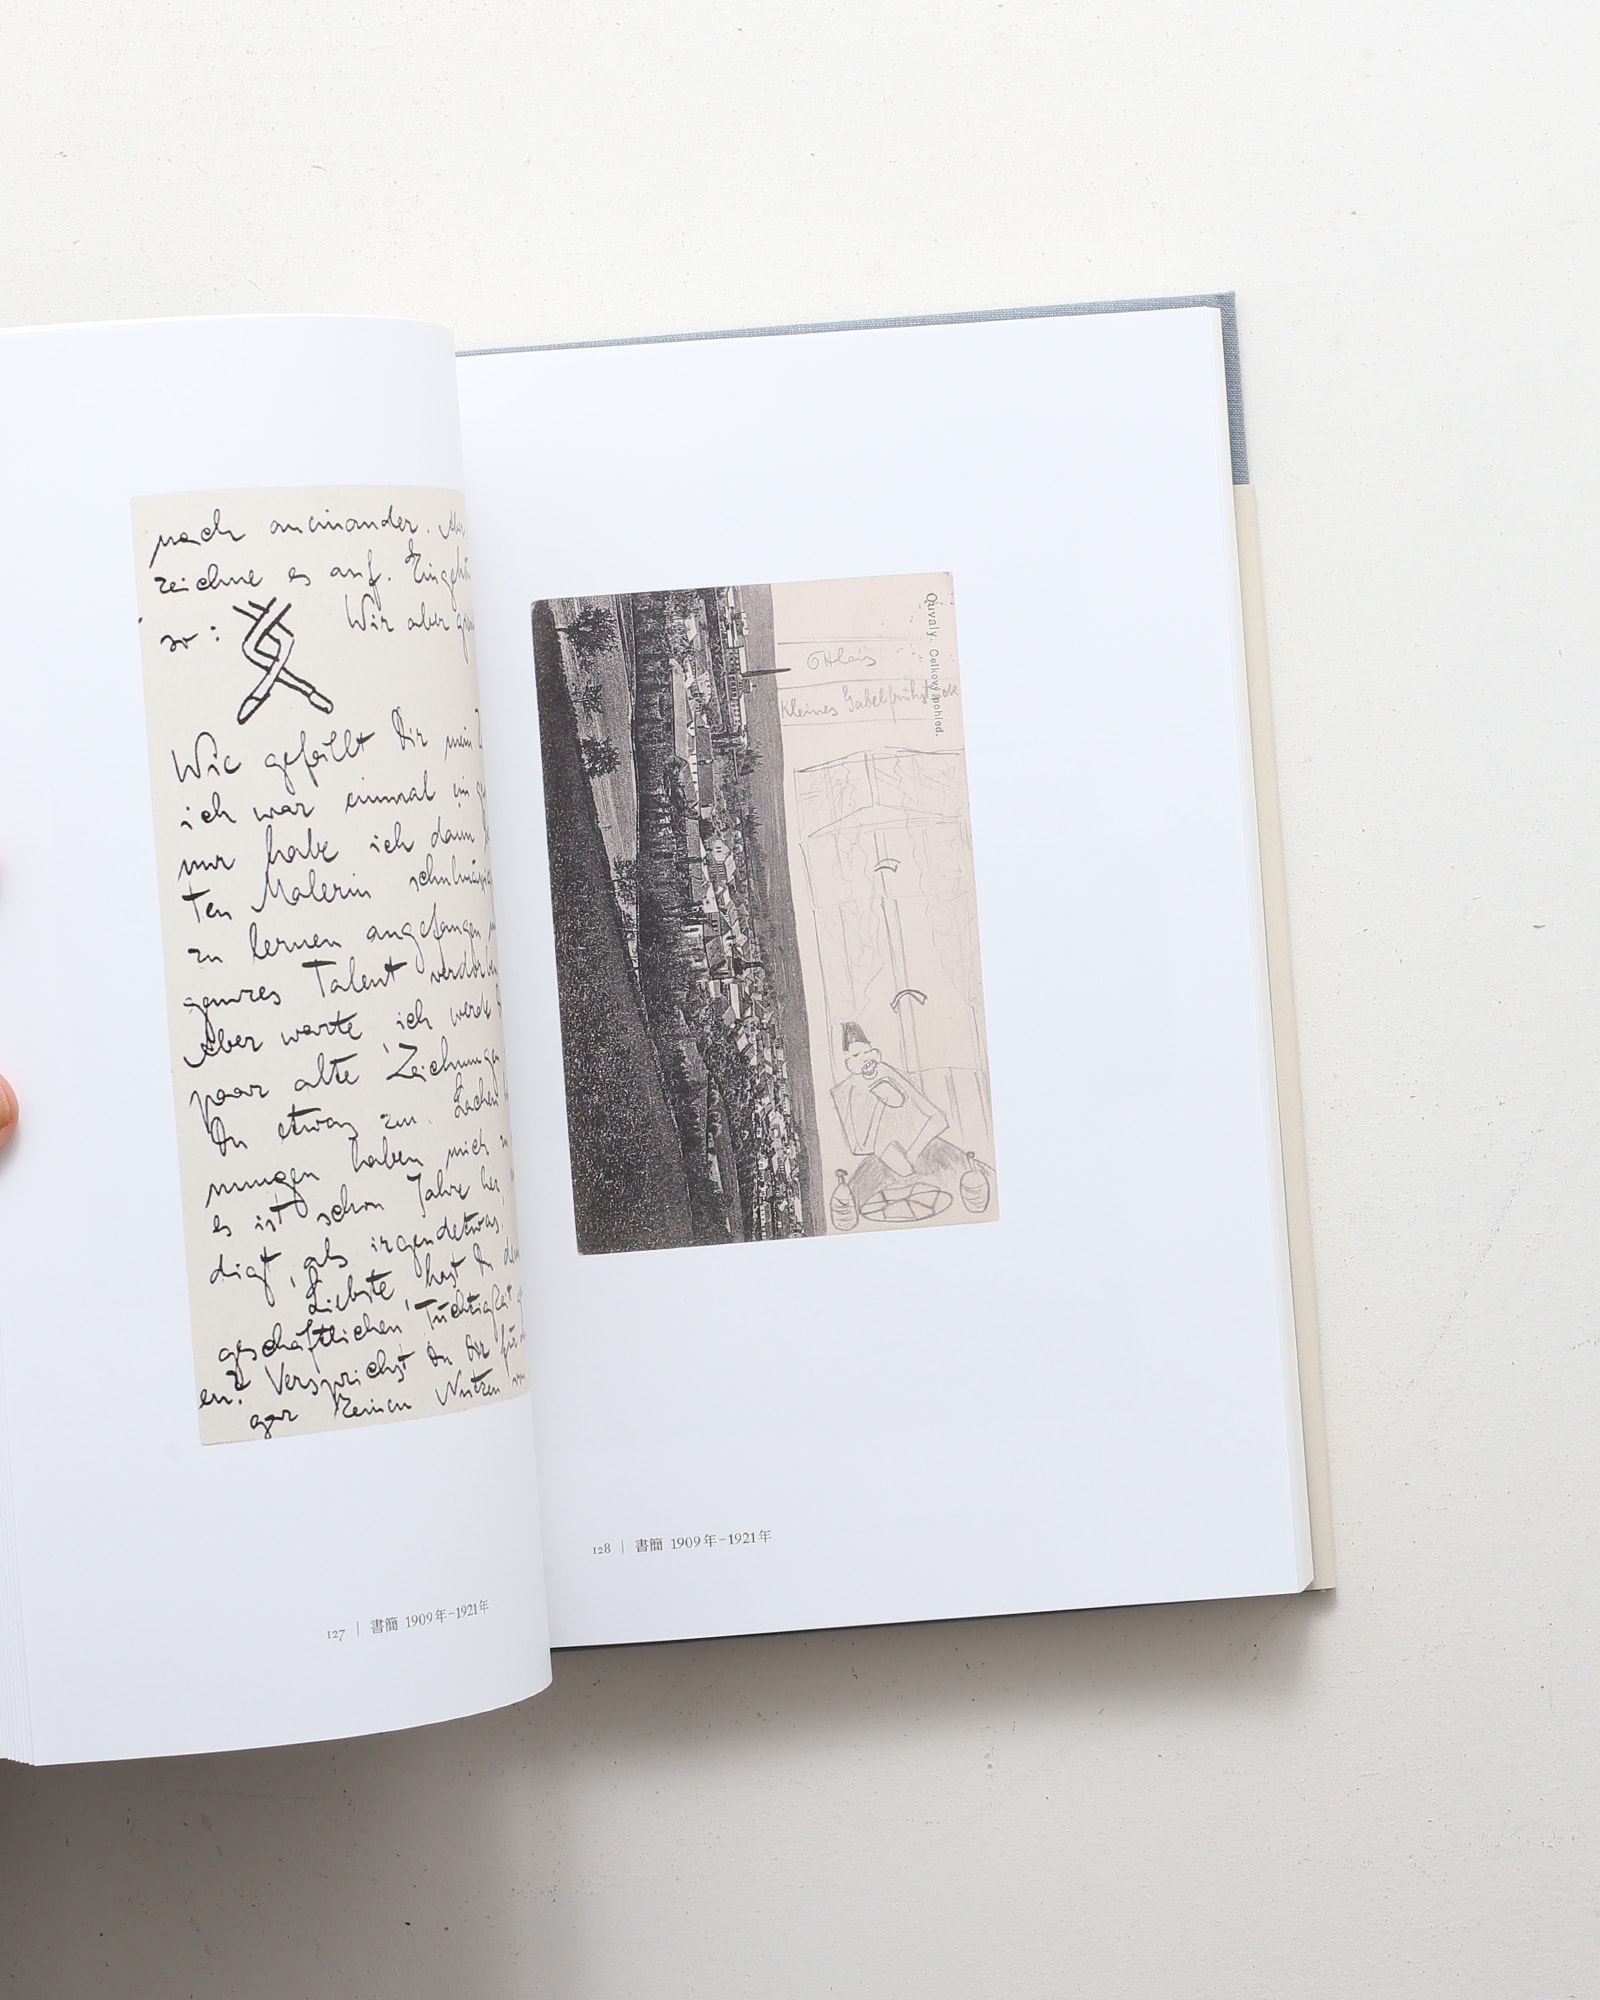 nach aneinander.
zeichne es auf.
so: Wir aber
Wie gefällt Dir mein
ich war einmal ein
nur habe ich dann
ten Malerin schulmäßig
zu lernen angefangen
ganzes Talent verdorben
Aber warte ich werde
paar alte Zeichnungen
Du etwas zu Lachen
nungen haben mich
es ist schon Jahre her,
digt, als irgendetwas.
Liebste, hast Du
geschäftlichen Tüchtigkeit
en? Versprichst Du Dir für
gar keinen Nutzen von
127 | 書簡 1909年–1921年
Ouvaly. Celkový pohled.
Ottlas
kleines Gabelfrühstück
128 | 書簡 1909年–1921年